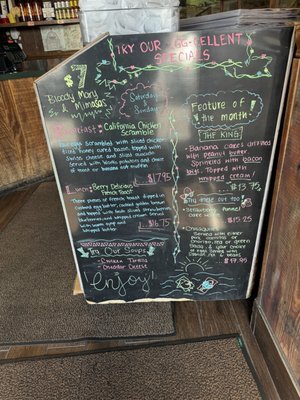 TRY OUR EGG-CELLENT
SPECIALS
$7
Bloody Mary
& Mimosas
Saturday
&
Sunday
Breakfast
California Chicken
Scramble
eggs scrambled with sliced chicken,
honey cured bacon, topped with
Swiss cheese and sliced avocado.
Served with potato and choice
of toast or banana nut muffin
$17.95
Lunch
Berry Delicious
French Toast
Three pieces of french toast dipped in
egg batter, golden brown
and topped with fresh sliced strawberries
blueberries and whipped cream. Served
with warm syrup and
whipped butter
$16.75
Try Our Soups
- Chicken Tortilla
- Cheddar Cheese
Enjoy!
Feature of
the month
"THE KING"
- Banana cakes
with peanut butter
Sprinkled with bacon
Topped with
whipped cream
$13.75
Try these out too!
- Strawberry
cake
$15.25
Served with
pico,
red or green
salsa
with Spanish rice &
$17.95